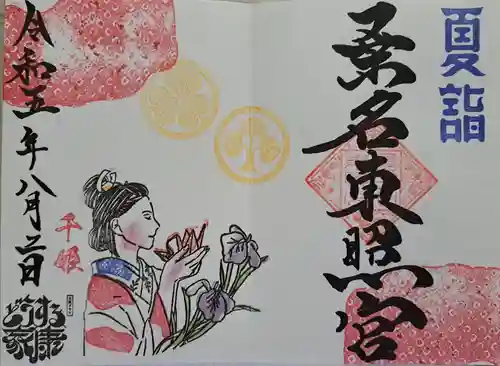 夏詣
桑名東照宮
千姫
令和五年八月二日
どうする
家康